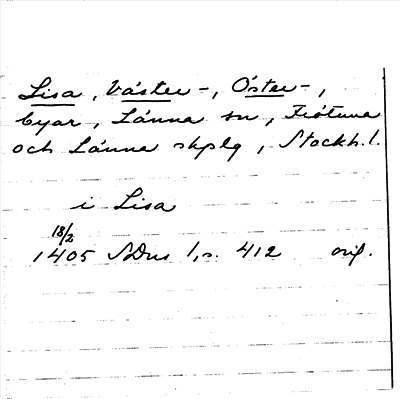 Lisa, Väster-, Öster-,
byar, Länna sn, Frötuna
och Länna skplg, Stockh. l.
i Lisa
18/2
1405 SDns 1, s. 412 orig.